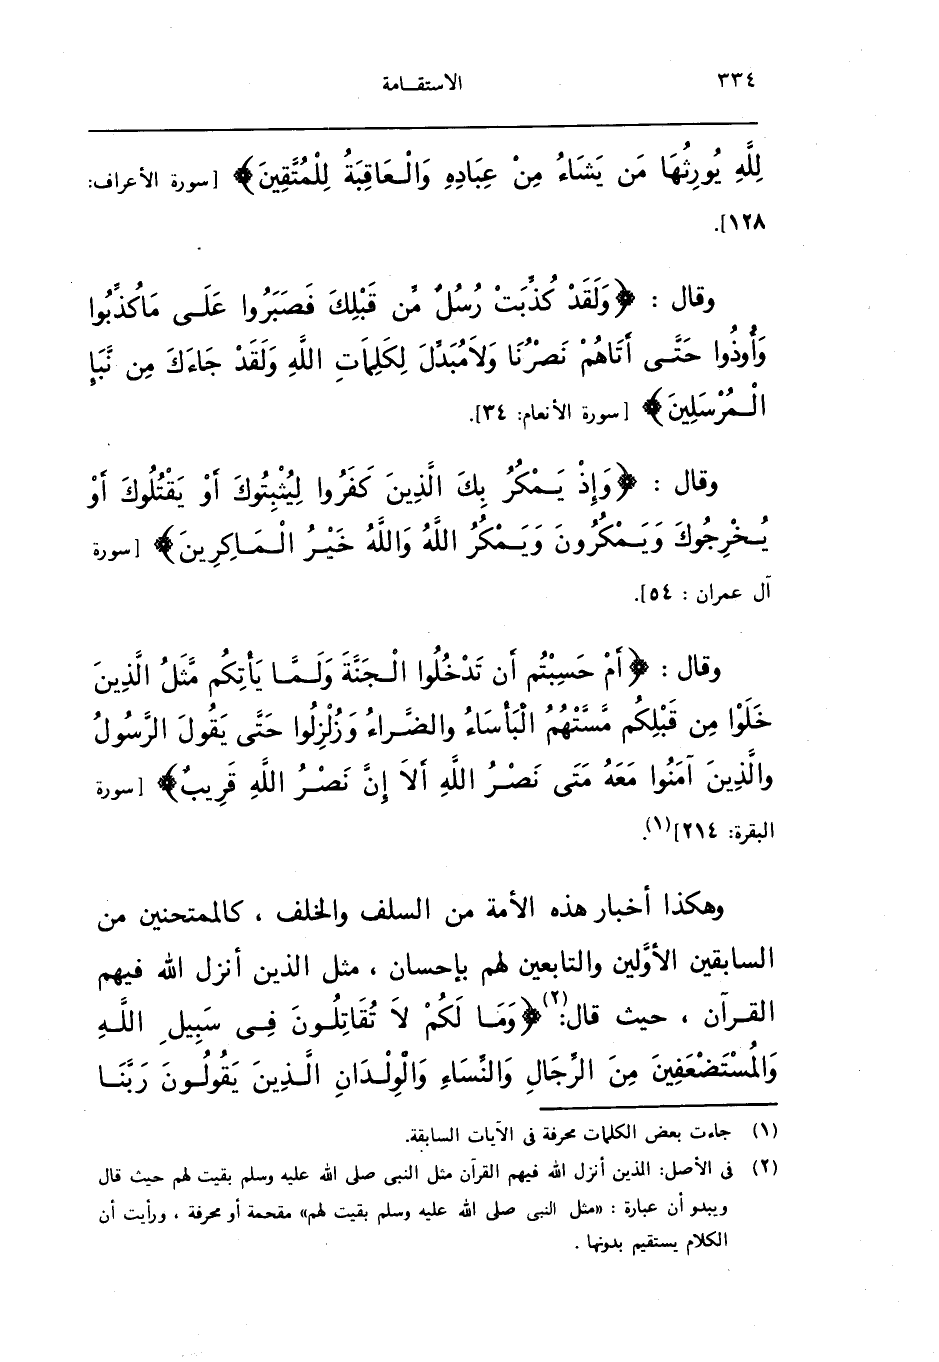 ٣٣٤ الاستقامة
لِلَّهِ يُورِثُهَا مَن يَشَاءُ مِنْ عِبَادِهِ وَالْعَاقِبَةُ لِلْمُتَّقِينَ﴾ [سورة الأعراف:
١٢٨].
وقال : ﴿وَلَقَدْ كُذِّبَتْ رُسُلٌ مِّن قَبْلِكَ فَصَبَرُوا عَلَى مَاكُذِّبُوا
وَأُوذُوا حَتَّى أَتَاهُمْ نَصْرُنَا وَلاَمُبَدِّلَ لِكَلِمَاتِ اللَّهِ وَلَقَدْ جَاءَكَ مِن نَّبَإِ
الْمُرْسَلِينَ﴾ [سورة الأنعام: ٣٤].
وقال : ﴿وَإِذْ يَمْكُرُ بِكَ الَّذِينَ كَفَرُوا لِيُثْبِتُوكَ أَوْ يَقْتُلُوكَ أَوْ
يُخْرِجُوكَ وَيَمْكُرُونَ وَيَمْكُرُ اللَّهُ وَاللَّهُ خَيْرُ الْمَاكِرِينَ﴾ [سورة
آل عمران : ٥٤].
وقال : ﴿أَمْ حَسِبْتُم أَن تَدْخُلُوا الْجَنَّةَ وَلَمَّا يَأْتِكُم مَّثَلُ الَّذِينَ
خَلَوْا مِن قَبْلِكُم مَّسَّتْهُمُ الْبَأْسَاءُ والضَّرَاءُ وَزُلْزِلُوا حَتَّى يَقُولَ الرَّسُولُ
والَّذِينَ آمَنُوا مَعَهُ مَتَى نَصْرُ اللَّهِ أَلاَ إِنَّ نَصْرُ اللَّهِ قَرِيبٌ﴾ [سورة
البقرة: ٢١٤](١).
وهكذا أخبار هذه الأمة من السلف والخلف ، كالممتحنين من
السابقين الأوَّلين والتابعين لهم بإحسان ، مثل الذين أنزل الله فيهم
القرآن ، حيث قال:(٢)﴿وَمَا لَكُمْ لاَ تُقَاتِلُونَ فِى سَبِيلِ اللَّهِ
وَالْمُسْتَضْعَفِينَ مِنَ الرِّجَالِ وَالنِّسَاءِ وَالْوِلْدَانِ الَّذِينَ يَقُولُونَ رَبَّنَا
(١) جاءت بعض الكلمات محرفة فى الآيات السابقة.
(٢) فى الأصل: الذين أنزل الله فيهم القرآن مثل النبى صلى الله عليه وسلم بقيت لهم حيث قال
ويبدو أن عبارة : «مثل النبى صلى الله عليه وسلم بقيت لهم» مقحمة أو محرفة ، ورأيت أن
الكلام يستقيم بدونها .